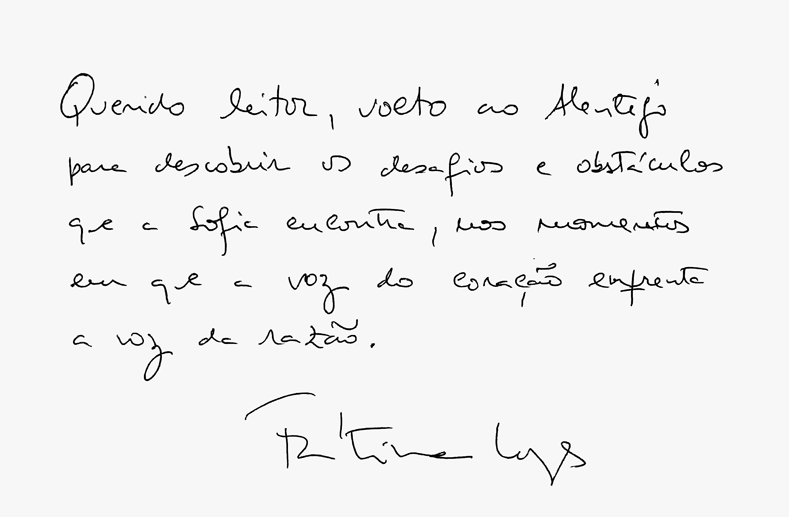 Querido leitor, volto ao Alentejo
para descobrir os desafios e obstáculos
que a Sofia encontra, nos momentos
em que a voz do coração enfrenta
a voz da razão.
Fátima Lopes